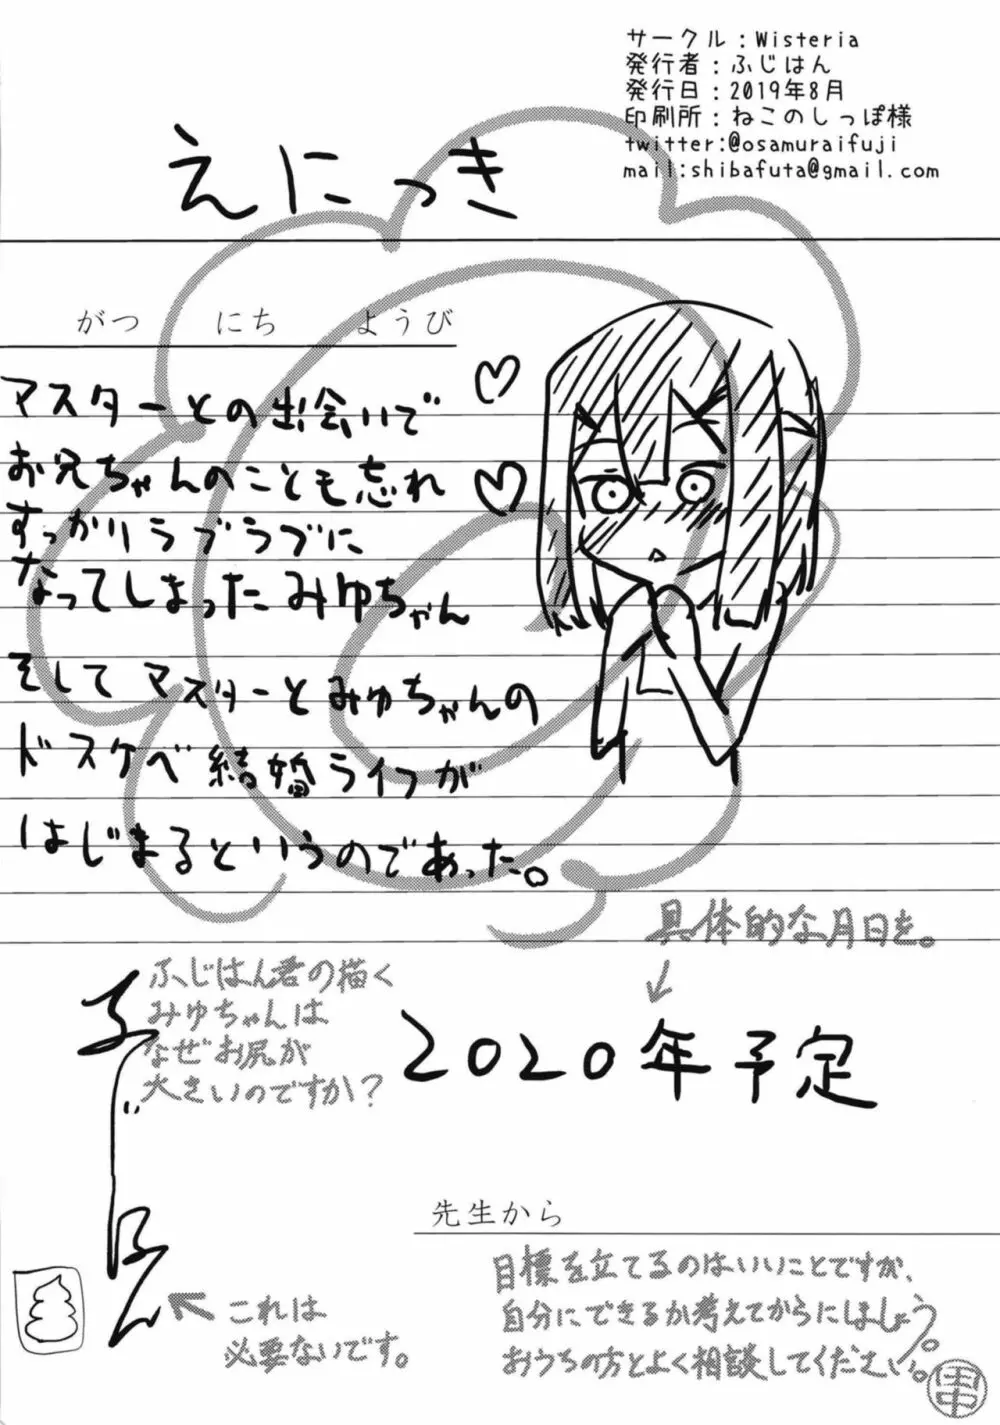 サークル：Wisteria
発行者：ふじはん
発行日：2019年8月
印刷所：ねこのしっぽ様
twitter:@osamuraifuji
mail:shibafuta@gmail.com
えにっき
がつ　にち　ようび
マスターとの出会いで
お兄ちゃんのことも忘れ
すっかりラブラブに
なってしまったみゆちゃん
そしてマスターとみゆちゃんの
ドスケベ結婚ライフが
はじまるというのであった。
具体的な月日を。
2020年予定
ふじはん君の描く
みゆちゃんは
なぜお尻が
大きいのですか?
ふじはん
これは
必要ないです。
先生から
目標を立てるのはいいことですが、
自分にできるか考えてからにしましょう。
おうちの方とよく相談してください。